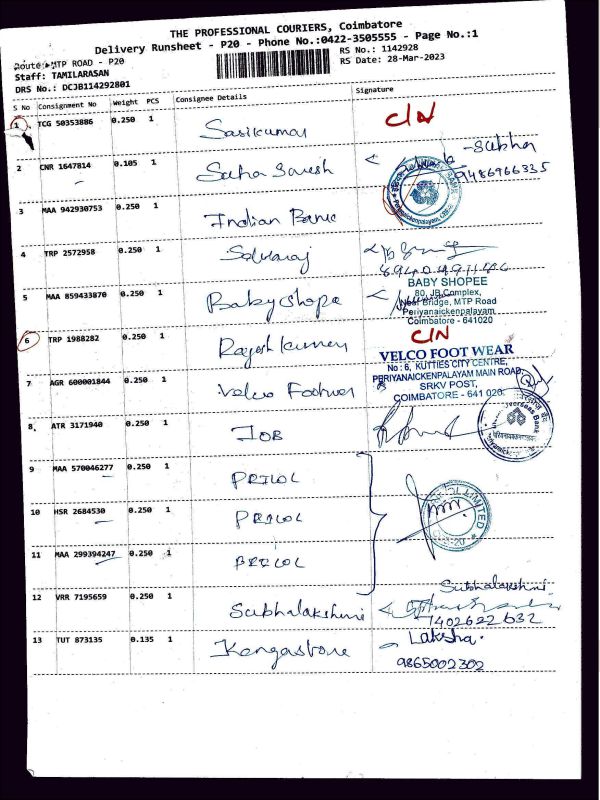 THE PROFESSIONAL COURIERS, Coimbatore
Delivery Runsheet - P20 - Phone No.:0422-3505555 - Page No.:1
Route:MTP ROAD - P20
RS No.: 1142928
Staff: TAMILARASAN
RS Date: 28-Mar-2023
DRS No.: DCJB114292801
S No Consignment No Weight PCS Consignee Details Signature
1 TCG 50353886 0.250 1 Sasikumar C/N
2 CNR 1647814 0.105 1 Suha Suresh -Subha
9486966335
3 MAA 942930753 0.250 1 Indian Bank
4 TRP 2572958 0.250 1 Selvaraj
5 MAA 859433870 0.250 1 Babyshope
BABY SHOPEE
80, JB Complex,
Bridge, MTP Road
Periyanaickenpalayam,
Coimbatore - 641020
6 TRP 1988282 0.250 1 Rajesh kumar C/N
7 AGR 600001844 0.250 1 Velco Footwer
VELCO FOOT WEAR
No : 6, KUTTIES CITY CENTRE,
PERIYANAICKENPALAYAM MAIN ROAD,
SRKV POST,
COIMBATORE - 641 020.
8 ATR 3171940 0.250 1 IOB
9 MAA 570046277 0.250 1 PRICOL
10 HSR 2684530 0.250 1 PRICOL
11 MAA 299394247 0.250 1 PRICOL
LIMITED
12 VRR 7195659 0.250 1 Subhalakshmi Subhalakshmi
1402622632
13 TUT 873135 0.135 1 Kongastone Laksha.
9865002302